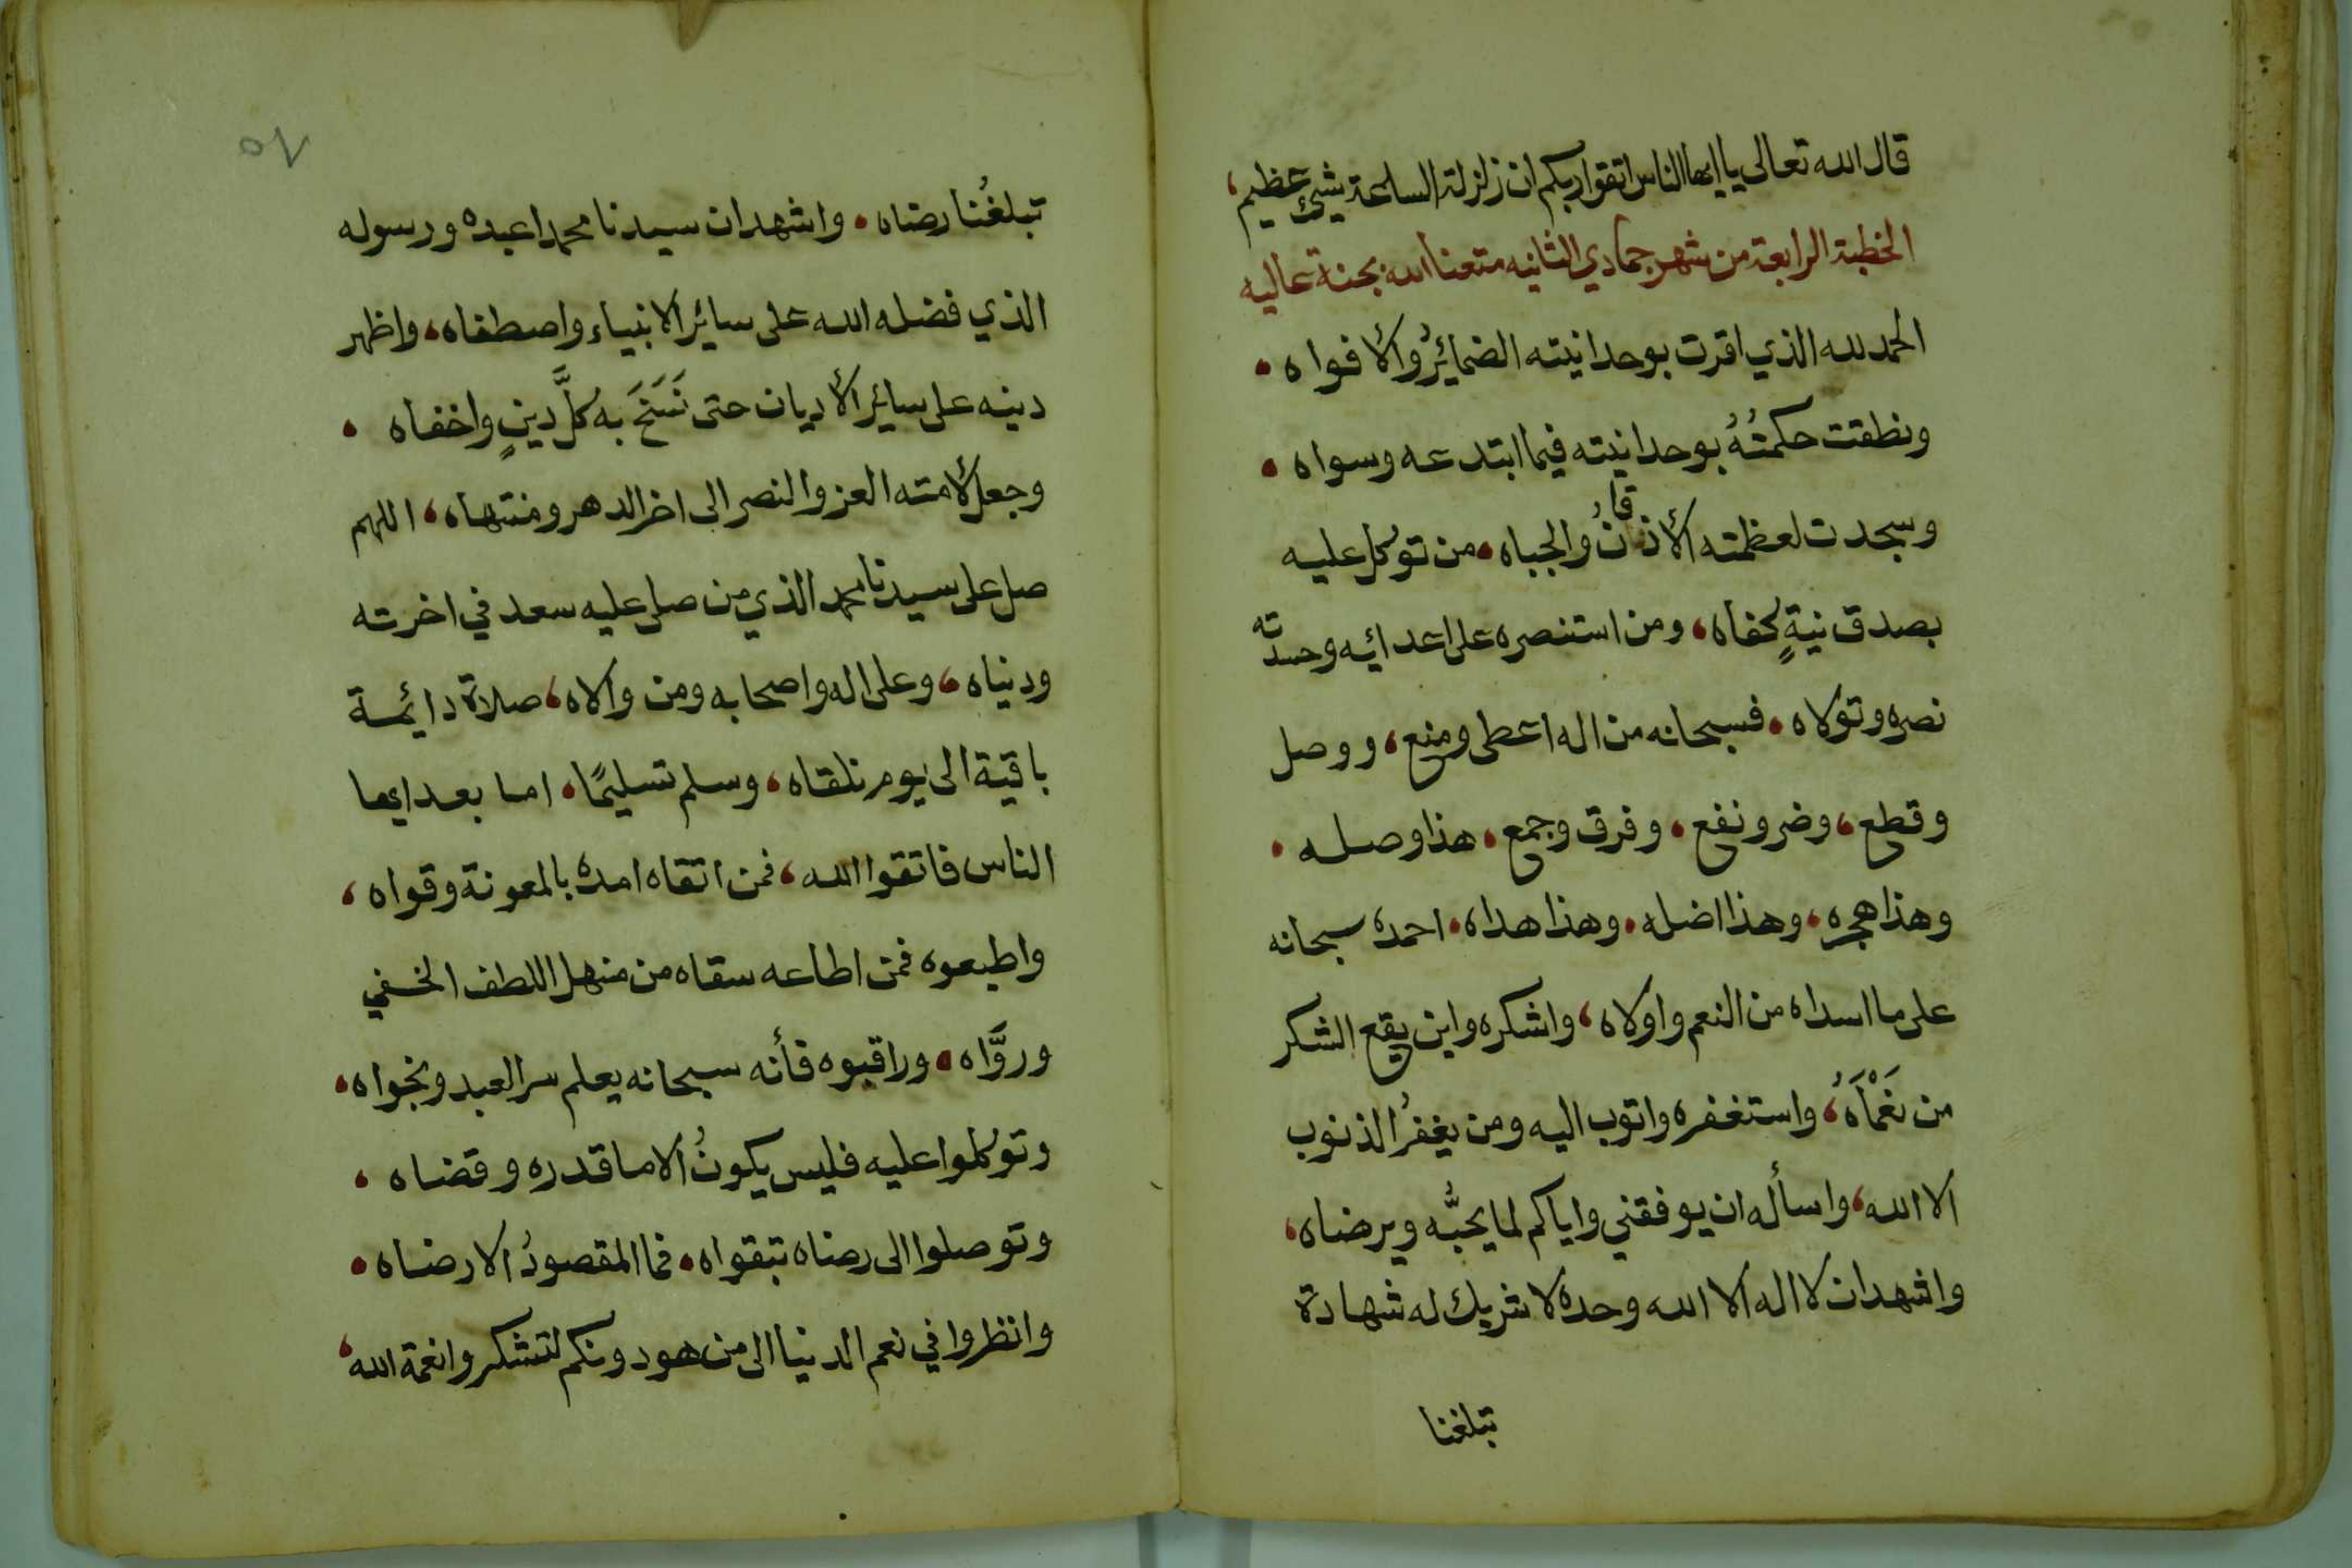 قال الله تعالى يا ايها الناس اتقوا ربكم ان زلزلة الساعة شيئ عظيم،
الخطبة الرابعة من شهر جمادي الثانيه متعنا الله بجنة عاليه
الحمد لله الذي اقرت بوحدانيته الضمائرُ والأفواه •
ونطقت حكمتُهُ بوحدانيته فيما ابتدعه وسواه •
وسجدت لعظمته الأذقانُ والجباه • من توكل عليه
بصدق نيةٍ كفاه، ومن استنصره على اعدائه وحسدته
نصره وتولاه • فسبحانه من اله اعطى ومنع، ووصل
وقطع، وضر ونفع • وفرق وجمع • هذا وصله •
وهذا هجره، وهذا اضله • وهذا هداه • احمده سبحانه
على ما اسداه من النعم واولاه، واشكره واين يقع الشكر
من نَعْمَآهُ، واستغفره واتوب اليه ومن يغفرُ الذنوب
الا الله، واسأله ان يوفقني واياكم لما يحبُّه ويرضاه،
واشهد ان لا اله الا الله وحده لا شريك له شهادة
تبلغنا
٥٧
تبلغُنا رضاه • واشهد ان سيدنا محمدا عبده ورسوله
الذي فضله الله على سائر الانبياء واصطفاه، واظهر
دينه على سائر الأديان حتى نَسَخَ به كلَّ دينٍ واخفاه •
وجعل لأمته العز والنصر الى اخر الدهر ومنتهاه، اللهم
صل على سيدنا محمد الذي من صلى عليه سعد في اخرته
ودنياه، وعلى اله واصحابه ومن والاه، صلاة دائمة
باقية الى يوم نلقاه، وسلم تسليمًا، اما بعد ايها
الناس فاتقوا الله، فمن اتقاه امده بالمعونة وقواه،
واطيعوه فمن اطاعه سقاه من منهل اللطف الخفي
وروَّاه • وراقبوه فأنه سبحانه يعلم سر العبد ونجواه،
وتوكلوا عليه فليس يكونُ الا ما قدره وقضاه •
وتوصلوا الى رضاه بتقواه • فما المقصودُ الا رضاه •
وانظروا في نعم الدنيا الى من هو دونكم لتشكروا نعمة الله،